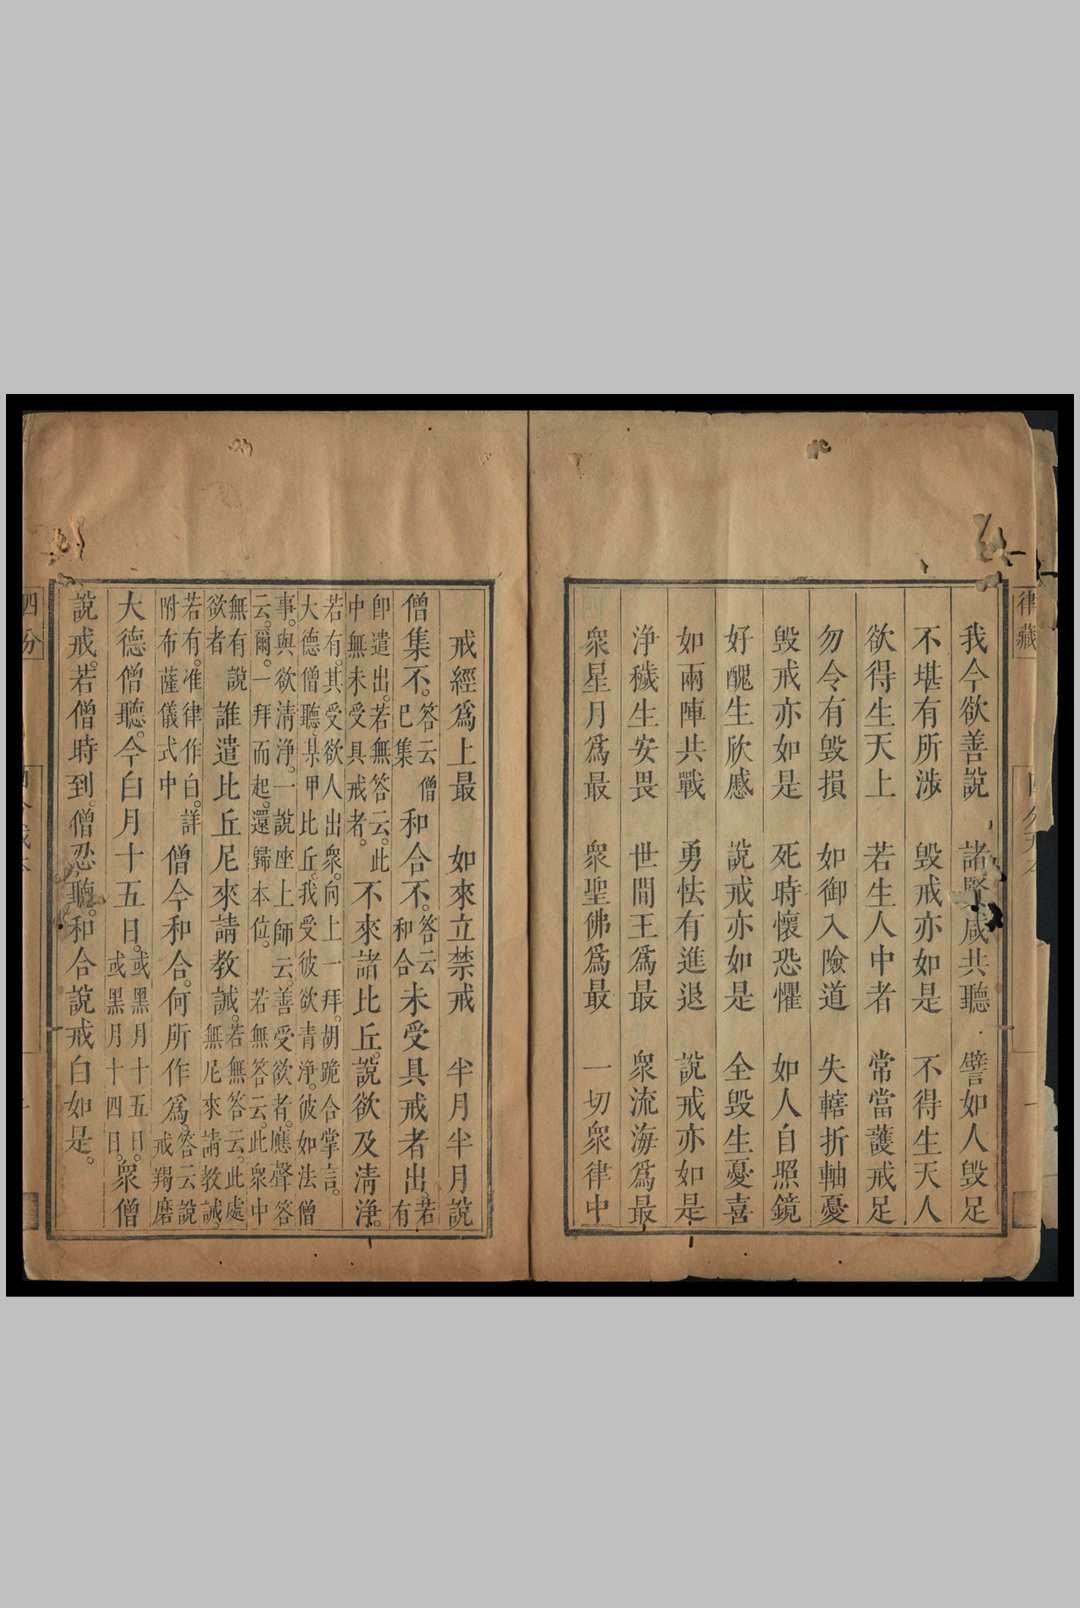 律藏
我今欲善說　諸賢咸共聽　譬如人毀足
不堪有所涉　毀戒亦如是　不得生天人
欲得生天上　若生人中者　常當護戒足
勿令有毀損　如御入險道　失轄折軸憂
毀戒亦如是　死時懷恐懼　如人自照鏡
好醜生欣慼　說戒亦如是　全毀生憂喜
如兩陣共戰　勇怯有進退　說戒亦如是
淨穢生安畏　世間王爲最　衆流海爲最
衆星月爲最　衆聖佛爲最　一切衆律中
戒經爲上最　如來立禁戒　半月半月說
僧集不。答云僧已集和合不。答云和合未受具戒者出。若有
卽遣出。若無答云。此中無未受具戒者。不來諸比丘。說欲及清淨。
若有。其受欲人出衆。向上一拜。胡跪合掌言。
大德僧聽。某甲比丘。我受彼欲青淨。彼如法僧
事。與欲清淨。一說座上師云。善受欲者。應聲答
云。爾。一拜而起。還歸本位。若無答云。此衆中
無有說欲者誰遣比丘尼來請教誡。若無答云。此處無尼來請教誡。
若有。准律作白。詳附布薩儀式中僧今和合。何所作爲。答云說戒羯磨
大德僧聽。今白月十五日。或黑月十五日。或黑月十四日。衆僧
說戒。若僧時到。僧忍聽。和合說戒白如是。
四分